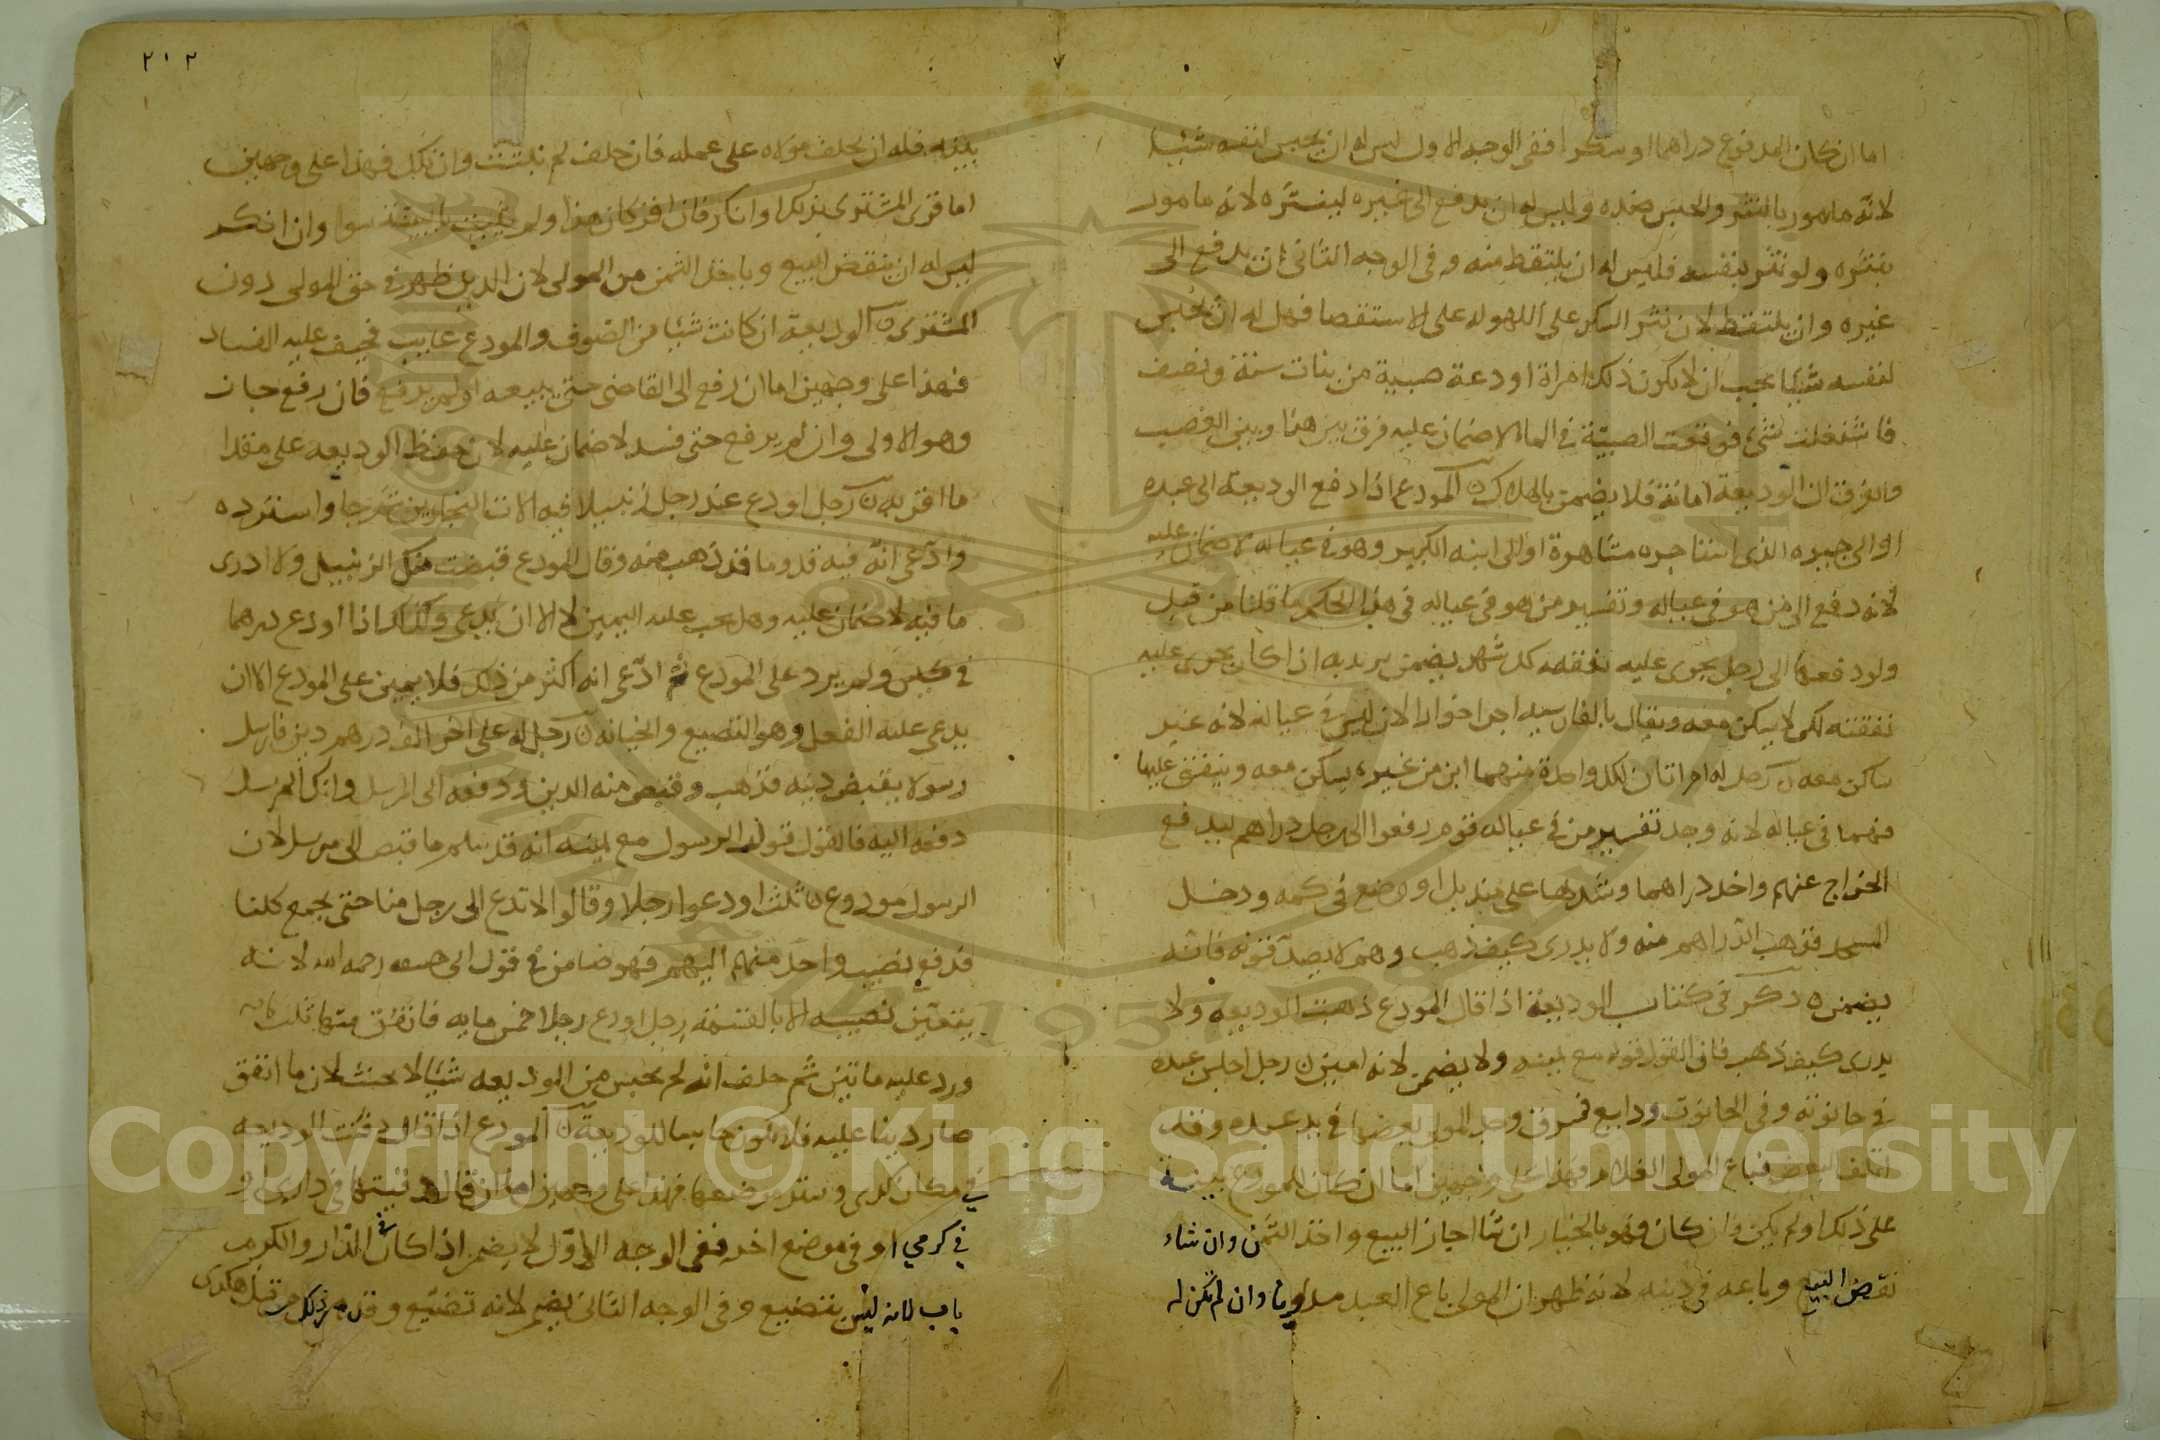 اما ان كان المدفوع دراهما او سكرا ففى الوجه الاول ليس له ان يحبس لنفسه شيئا
لانه مامور بالنثر والحبس ضده وليس له ان يدفع الى غيره لينثره لانه مامور
بنثره ولو نثر بنفسه فليس له ان يلتقط منه وفى الوجه الثانى ان يدفع الى
غيره وان يلتقط لان نثر السكر على اللهو لا على الاستقصا فهل له ان يحبس
لنفسه شيئا يجب ان لا يكون ذلك امراة اودعة صبية من بنات سنة ونصف
فاشتغلت بشئ فوقعت الصبية فى الماء لا ضمان عليه فرق بين هذا وبين الغصب
والفرق ان الوديعة امانة فلا يضمن بالهلاك المودع اذا دفع الوديعة الى عبده
او الى اجيره الذى استاجره مشاهرة او الى ابنه الكبير وهو فى عياله لا ضمان عليه
لانه دفع الى من هو فى عياله وتفسير من هو فى عياله فى هذا الحكم ما قلنا من قبل
ولو دفعها الى رجل يجرى عليه نفقته كل شهر يضمن يريد به اذا كان يجرى عليه
نفقته لكن لا يسكن معه ويقال بالفارسيه اجرا خوار الان ليس فى عياله لانه غير
ساكن معه رجل له امراتان لكل واحدة منهما ابن من غيره يسكن معه وينفق عليها
فهما فى عياله لانه وجد تفسير من فى عياله قوم دفعوا الى رجل دراهم ليدفع
الخراج عنهم واخذ دراهما وشدها على منديل او وضع فى كمه ودخل
المسجد فذهب الدراهم منه ولا يدرى كيف ذهب وهم لا يصدقونه فانه
يضمن ذكر فى كتاب الوديعة اذا قال المودع ذهبت الوديعة ولا
يدرى كيف ذهب فان القول قوله مع يمينه ولا يضمن لانه امين رجل اجلس عبده
فى حانوته وفى الحانوت ودايع فسرق وجد المولى بعضها فى يد عبده وقد
اتلف البعض فباع المولى الغلام فهذا على وجهين اما ان كان للمودع بينة
على ذلك او لم يكن فان كان فهو بالخيار ان شا اجاز البيع واخذ الثمن وان شاء
نقض البيع وباعه فى دينه لانه ظهر ان المولى باع العبد مديونا وان لم تكن له
٢١٣
بينه فله ان يحلف مولاه على عمله فان حلف لم يثبت وان نكل فهذا على وجهين
اما اقر المشترى بذلك او انكر فان اقر كان هذا وما ثبت بالبينة سوا وان انكر
ليس له ان ينقض البيع وياخذ الثمن من المولى لان الدين ظهر فى حق المولى دون
المشترى الوديعة ان كانت شيئا من الصوف والمودع غايب فخيف عليه الفساد
فهذا على وجهين اما ان رفع الى القاضى حتى يبيعه او لم يرفع فان رفع جاز
وهو الاولى وان لم يرفع حتى فسد لا ضمان عليه لان حفظ الوديعة على مقدار
ما اقر به رجل اودع عند رجل زنبيلا فيه الات النجارين ثم جا واسترده
وادعى انه فيه قدوما قد ذهب منه وقال المودع قبضت منك الزنبيل ولا ادرى
ما فيه لا ضمان عليه وهل يجب عليه اليمين لا الا ان يدعى وكذلك اذا اودع درهما
فى كيس ولم يرد على المودع ثم ادعى انه اكثر من ذلك فلا يمين على المودع الا ان
يدعى عليه الفعل وهو التضييع والخيانة رجل له على اخر الف درهم دين فارسل
رسولا يقبض دينه فذهب وقبض منه الدين ودفعه الى المرسل وانكر المرسل
دفعه اليه فالقول قول الرسول مع يمينه انه قد سلم ما قبض الى مرسله لان
الرسول مودوع ثلث اودعوا رجلا وقالوا لا تدع الى رجل منا حتى يجمع كلنا
فدفع نصيب واحد منهم اليهم فهو ضامن فى قول ابى حنيفة رحمه الله لانه
يتعين نصيبه الا بالقسمة رجل اودع رجلا خمس مايه فانفق منها ثلث مايه
ورد عليه ماتين ثم حلف انه لم يحبس من الوديعه شيئا لا يحنث لان ما انفق
صار دينا عليه فلا يكون حابسا للوديعة المودع اذا قال دفنت الوديعه
فى مكان كذى ونسيت موضعها فهذا على وجهين اما ان قال دفنتها فى دارى او
فى كرمي او فى موضع اخر ففى الوجه الاول لا يضمن اذا كان فى الدار والكرم
باب لانه ليس بتضييع وفى الوجه الثانى يضمن لانه تضييع وقد مر ذلك من قبل هكذى
Copyright © King Saud University
1957